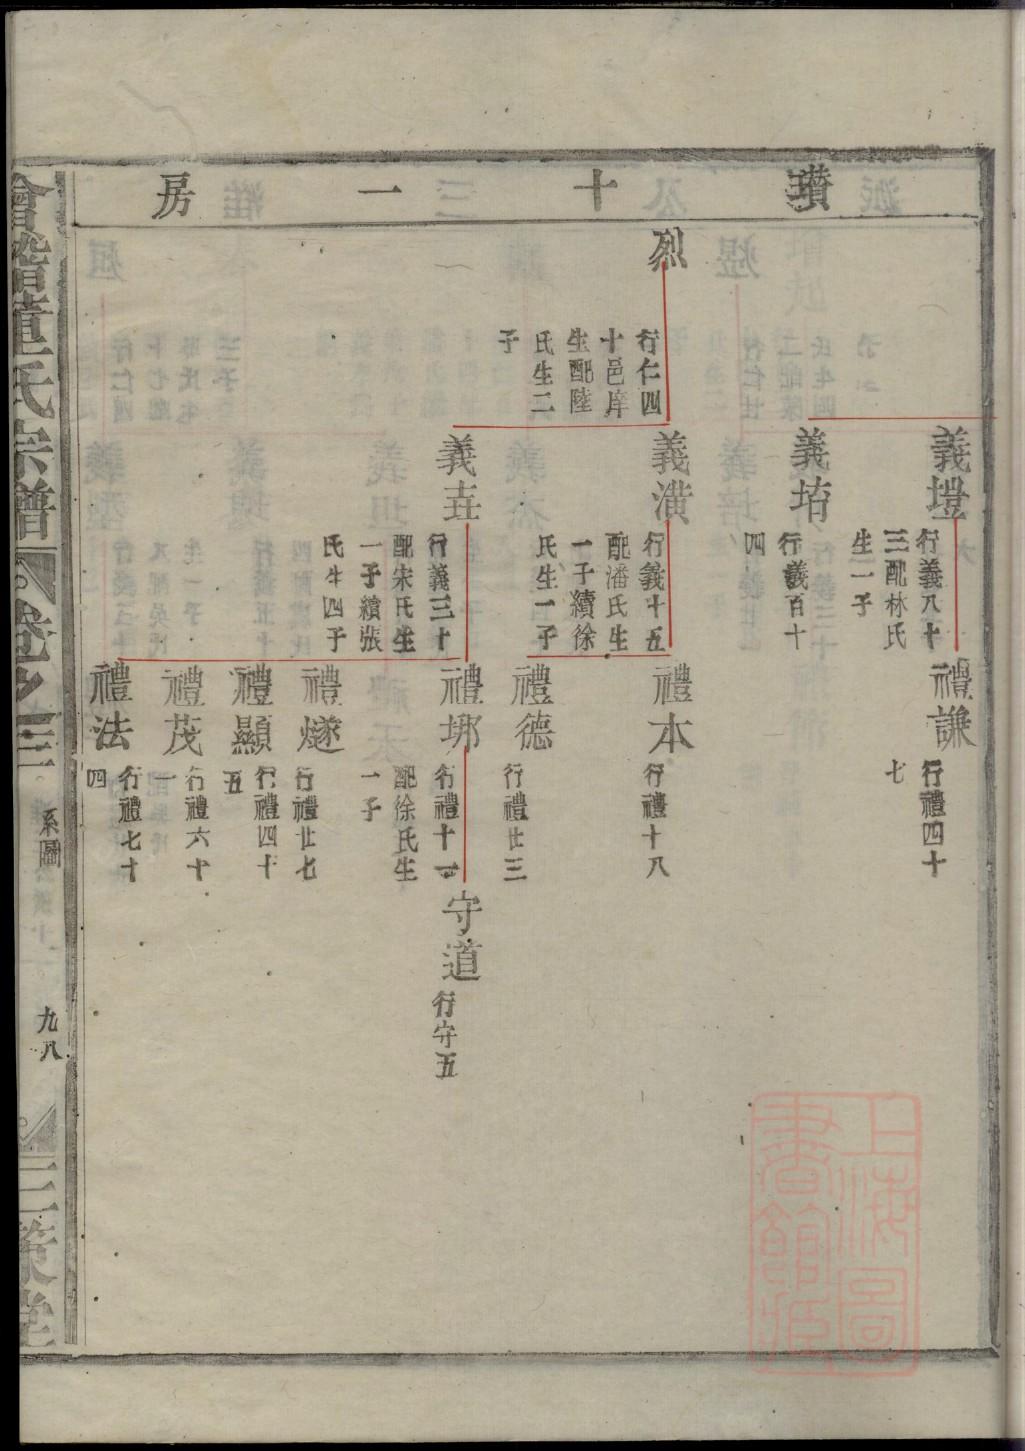 瓚十一房
烈
行仁四
十邑庠
生配陸
氏生二
子
義塏
行義八十
三配林氏
生一子
義垿
行義百十
四
義潢
行義十五
配潘氏生
一子續徐
氏生一子
義垚
行義三十
配宋氏生
一子續張
氏生四子
禮謙
行禮四十
七
禮本
行禮十八
禮德
行禮廿三
禮
行禮十一
配徐氏生
一子
禮燧
行禮廿七
禮顯
行禮四十
五
禮茂
行禮六十
一
禮法
行禮七十
四
守道
行守五
會稽董氏宗譜
卷之三
系圖
九八
三策堂
上海圖
書館藏